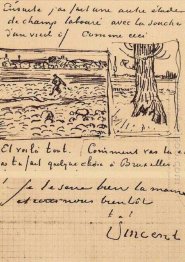 Ensuite j'ai fait une autre étude
de champ labouré avec la souche
d'un vieil if Comme ceci
Et voilà tout. Comment vas tu et
as tu fait quelque chose à Bruxelles
je te serre bien la main
et écrivez nous bientôt
t. à t.
Vincent